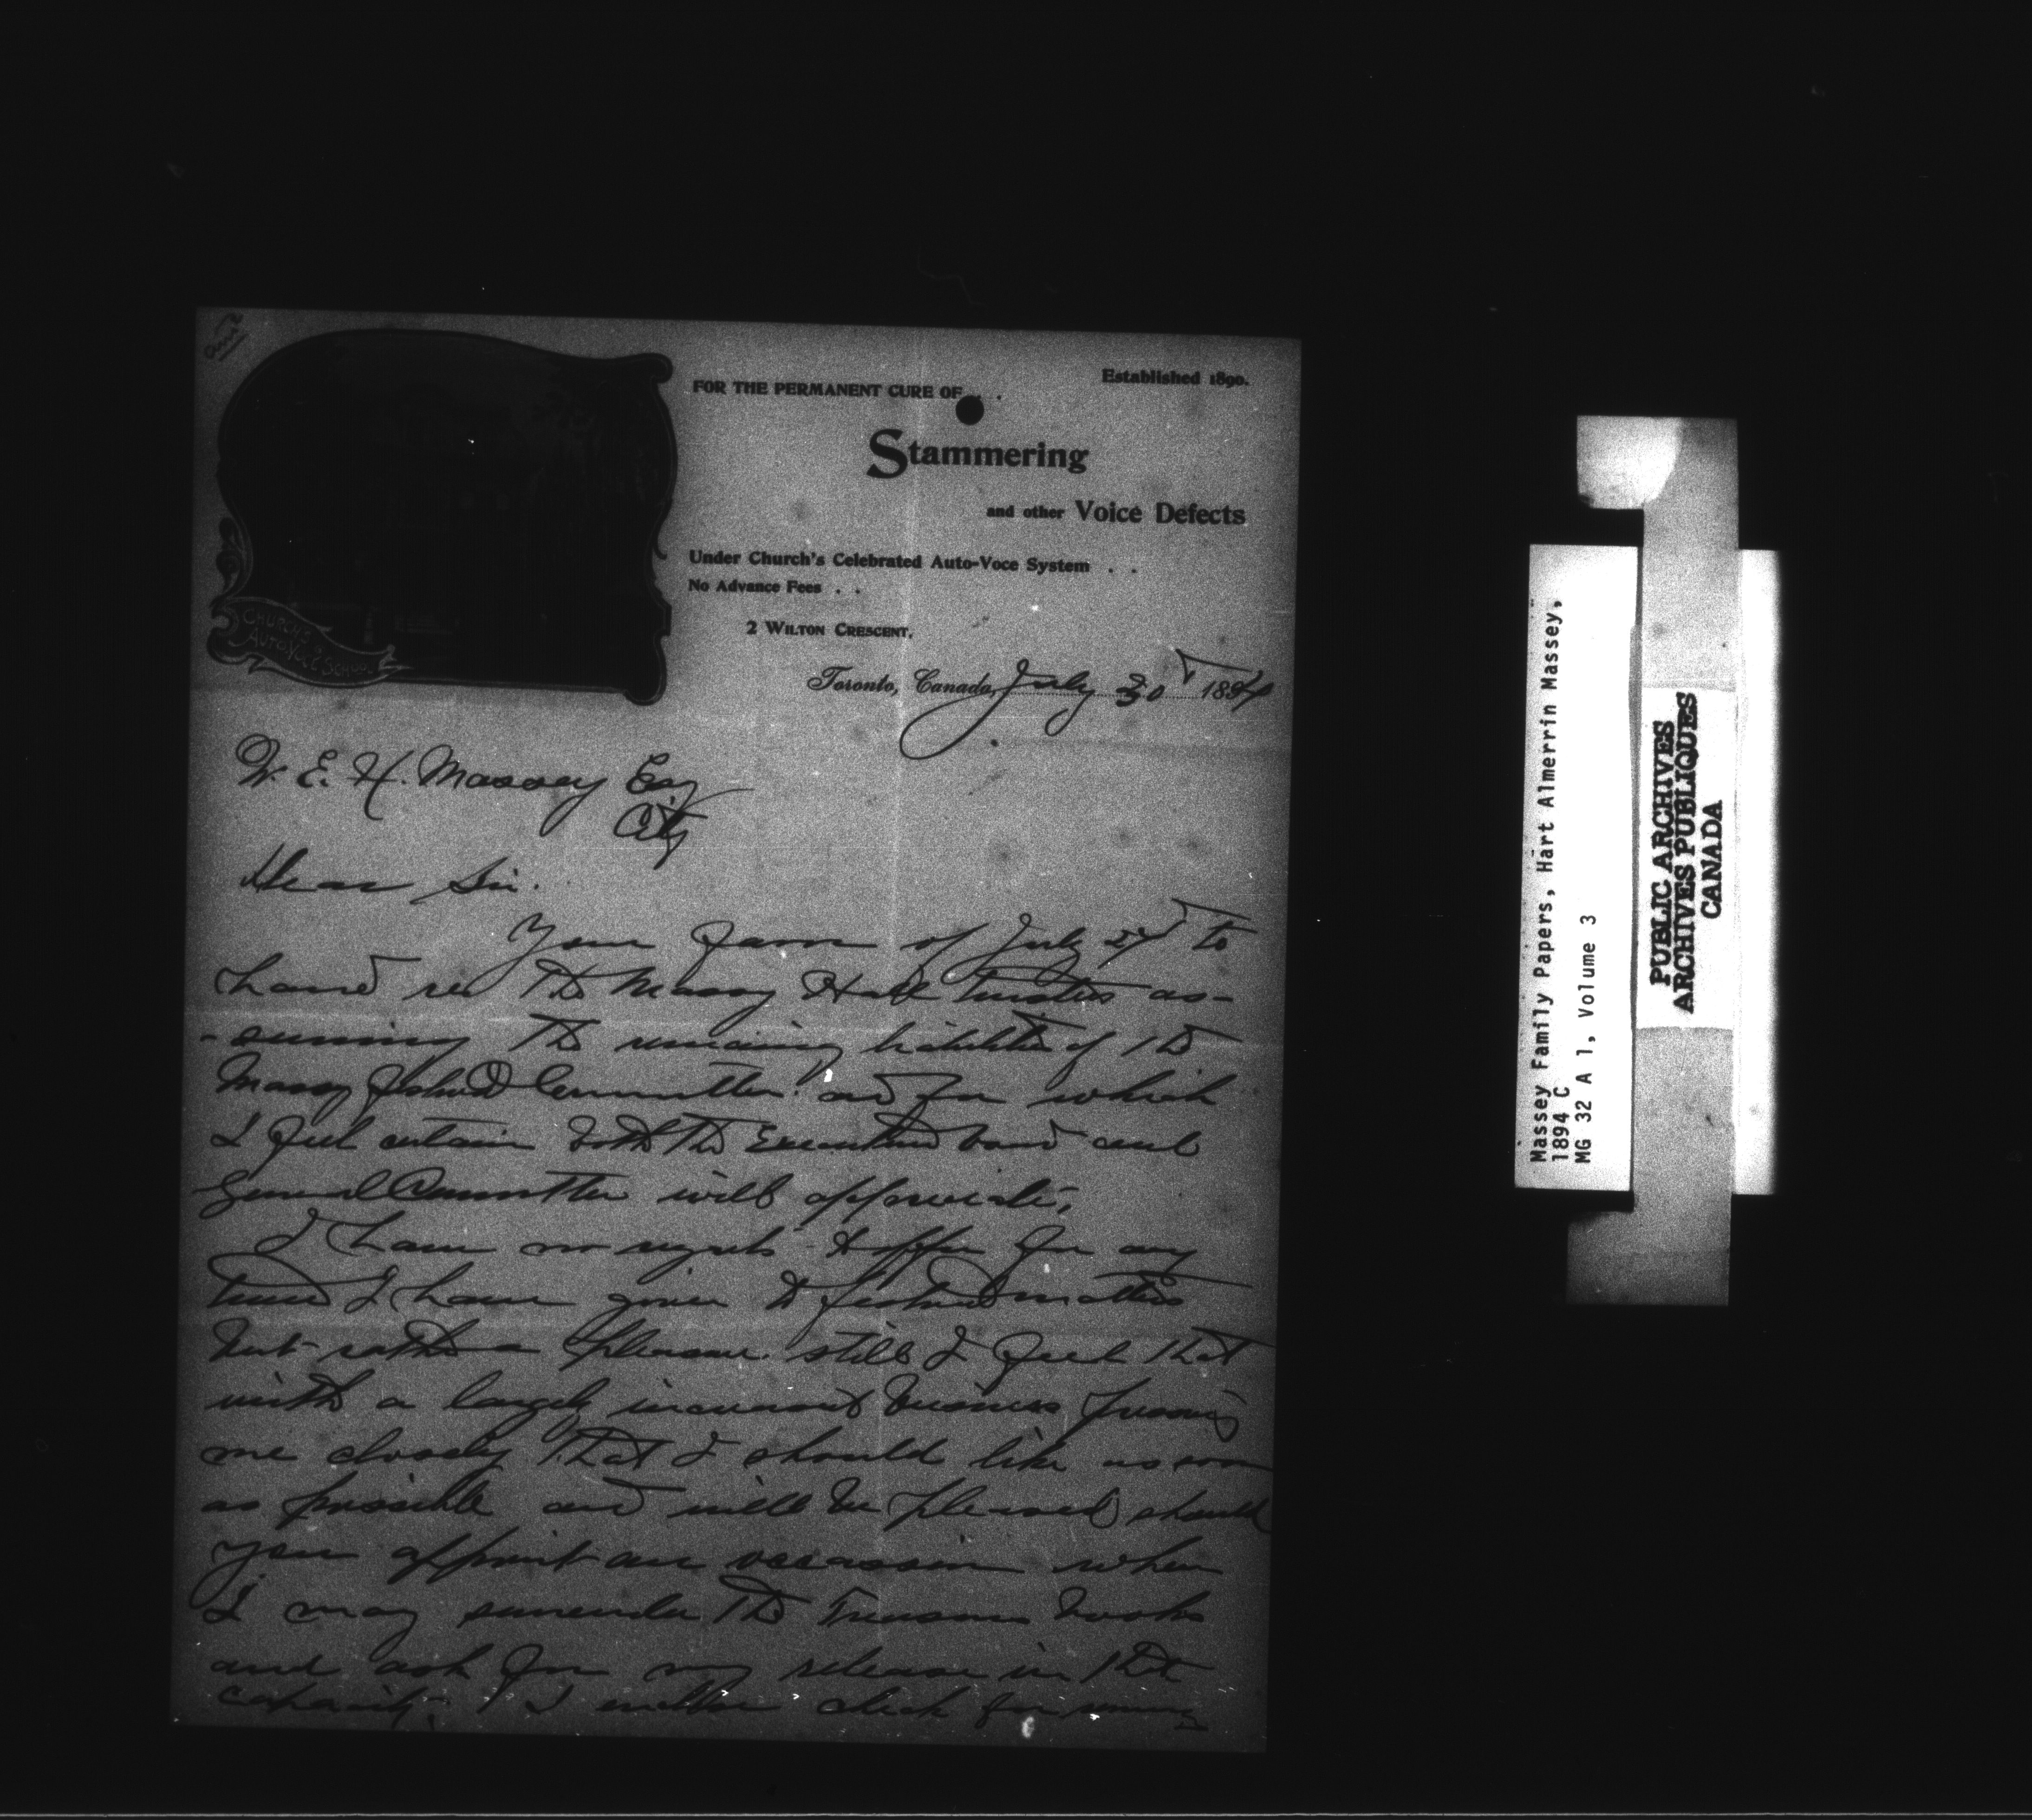 Established 1890.
FOR THE PERMANENT CURE OF . . .
Stammering
and other Voice Defects
Under Church's Celebrated Auto-Voce System . .
No Advance Fees . .
2 WILTON CRESCENT,
CHURCH'S
AUTO-VOCE SCHOOL
Toronto, Canada, July 30 1894
W. E. H. Massey Esq
City
Dear Sir.
Your favor of July 27 to
hand re the Massey Hall trustees as-
-suming the remaining liabilities of the
Massey Festival Committee. and for which
I feel certain both the Executive and
General Committee will appreciate,
I have no regrets to offer for any
time I have given to festival matters
but rather a pleasure. still I feel that
with a largely increased business pressing
me closely that I should like as soon
as possible and will be pleased should
you appoint an occassion when
I may surrender the Treasurers books
and ask for my release in that
capacity. I enclose check for
Massey Family Papers, Hart Almerrin Massey,
1894 C
MG 32 A 1, Volume 3
PUBLIC ARCHIVES
ARCHIVES PUBLIQUES
CANADA